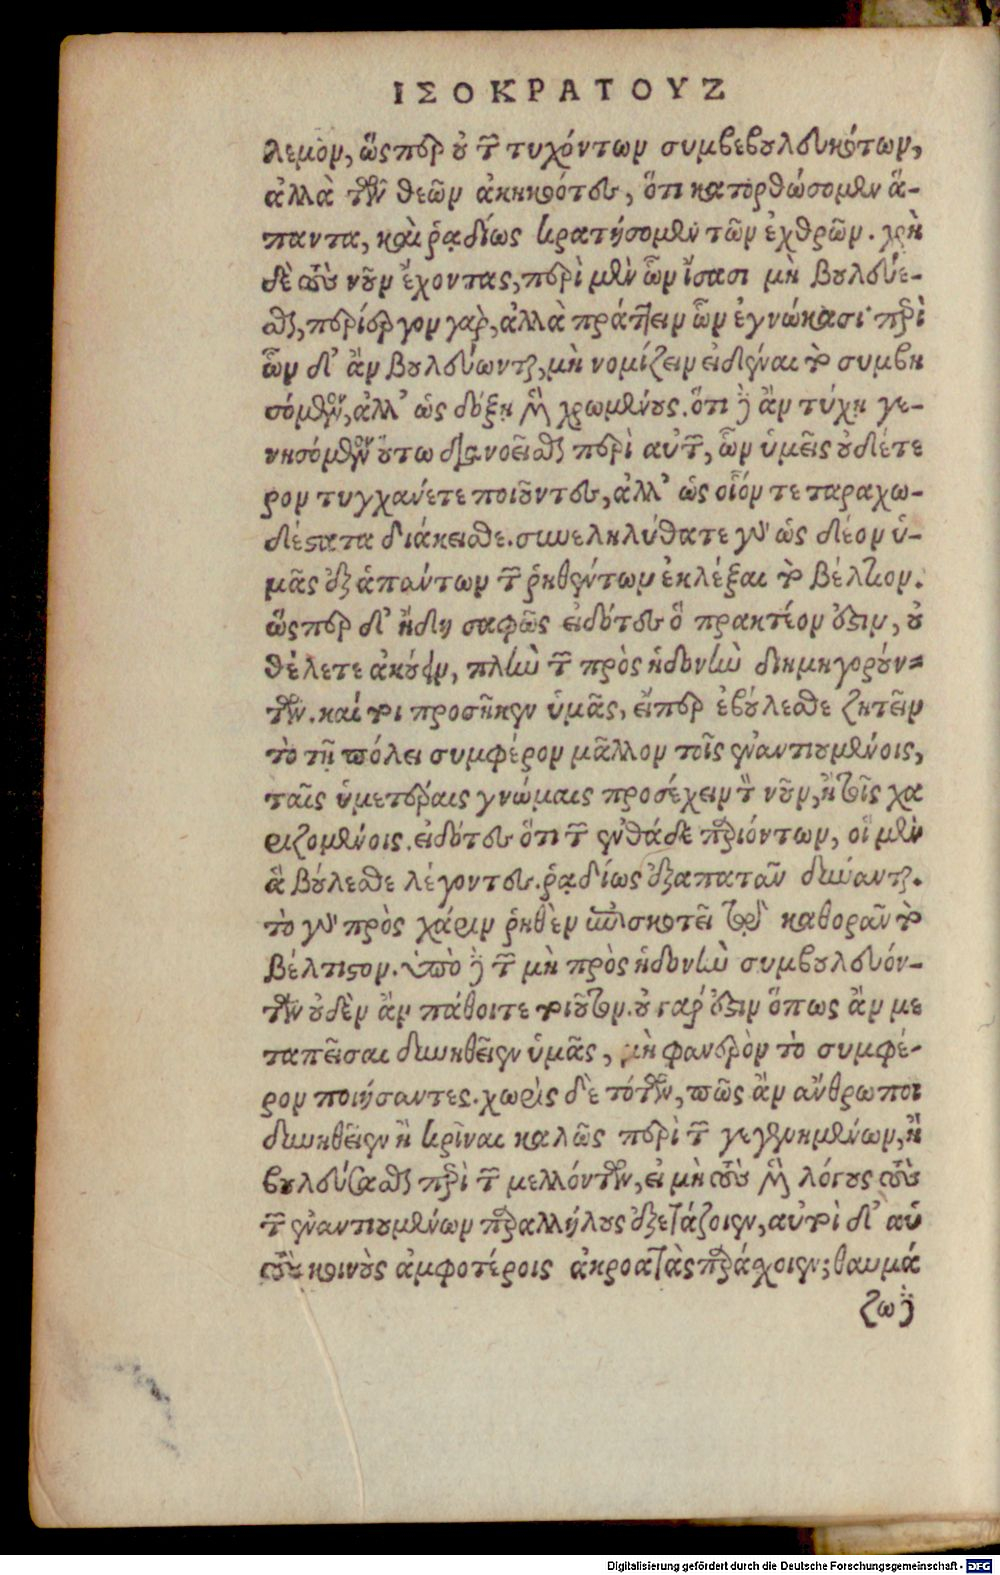 ΙΣΟΚΡΑΤΟΥΣ
λεμον, ὥσπερ οὐ τῶν τυχόντων συμβεβουλευκότων,
ἀλλὰ τῶν θεῶν ἀκηκοότες, ὅτι κατορθώσομεν ἅ-
παντα, καὶ ῥᾳδίως κρατήσομεν τῶν ἐχθρῶν. χρὴ
δὲ τοὺς νοῦν ἔχοντας, περὶ μὲν ὧν ἴσασι μὴ βουλεύε-
σθαι, περίεργον γὰρ, ἀλλὰ πράττειν ὧν ἐγνώκασι· περὶ
ὧν δ' ἂν βουλεύωνται, μὴ νομίζειν εἰδέναι τὸ συμβη
σόμενον, ἀλλ' ὡς δόξῃ μὲν χρωμένους. ὅτι δὲ ἂν τύχῃ γε-
νησόμενον οὕτω διανοεῖσθαι περὶ αὐτῶν, ὧν ὑμεῖς οὐδέτε
ρον τυγχάνετε ποιοῦντες, ἀλλ' ὡς οἷόν τε ταραχω-
δέστατα διάκεισθε. συνεληλύθατε γὰρ ὡς δέον ὑ-
μᾶς ἐξ ἁπάντων τῶν ῥηθέντων ἐκλέξαι τὸ βέλτιον.
ὥσπερ δ' ἤδη σαφῶς εἰδότες ὃ πρακτέον ἐστὶν, οὐ
θέλετε ἀκούειν, πλὴν τῶν πρὸς ἡδονὴν δημηγορούν-
των. καί τοι προσῆκεν ὑμᾶς, εἴπερ ἐβούλεσθε ζητεῖν
τὸ τῇ πόλει συμφέρον μᾶλλον τοῖς ἐναντιουμένοις,
ταῖς ὑμετέραις γνώμαις προσέχειν τὸν νοῦν, ἢ τοῖς χα
ριζομένοις. εἰδότες ὅτι τῶν ἐνθάδε παριόντων, οἱ μὲν
ἃ βούλεσθε λέγοντες. ῥᾳδίως ἐξαπατᾶν δύνανται.
τὸ γὰρ πρὸς χάριν ῥηθὲν ἐπισκοτεῖ τῷ καθορᾶν τὸ
βέλτιστον. ὑπὸ δὲ τῶν μὴ πρὸς ἡδονὴν συμβουλευόν-
των οὐδὲν ἂν πάθοιτε τοιοῦτον. οὐ γάρ ἐστιν ὅπως ἂν με
ταπεῖσαι δυνηθεῖεν ὑμᾶς, μὴ φανερὸν τὸ συμφέ-
ρον ποιήσαντες. χωρὶς δὲ τότων, πῶς ἂν ἄνθρωποι
δυνηθεῖεν ἢ κρῖναι καλῶς περὶ τῶν γεγενημένων, ἢ
βουλεύσασθαι περὶ τῶν μελλόντων, εἰ μὴ τοὺς μὲν λόγους τοὺς
τῶν ἐναντιουμένων παραλλήλους ἐξετάζοιεν, αὐτοὶ δ' αὑ
τοὺς κοινοὺς ἀμφοτέροις ἀκροατὰς παράσχοιεν; θαυμά
ζω δὲ
Digitalisierung gefördert durch die Deutsche Forschungsgemeinschaft - DFG